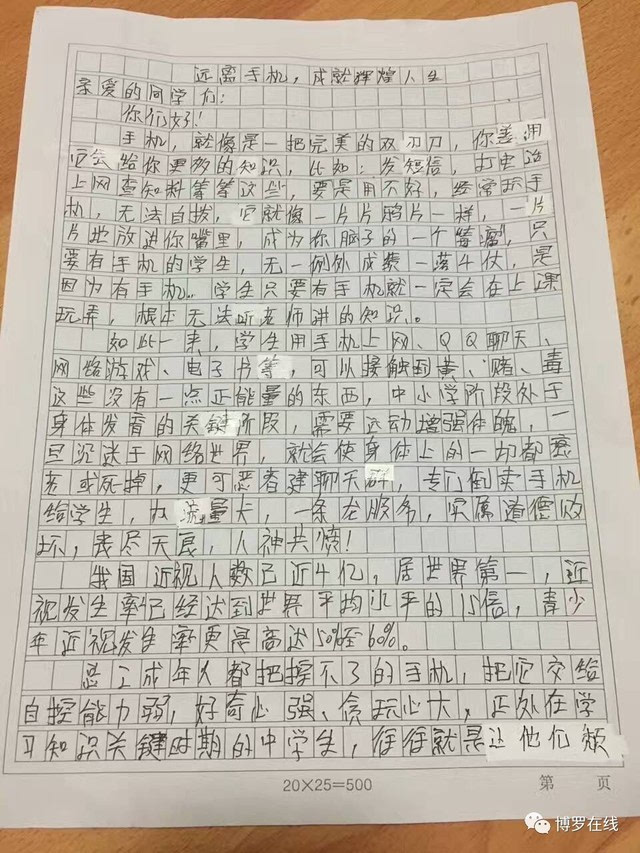 远离手机，成就辉煌人生
亲爱的同学们：
你们好！
手机，就像是一把完美的双刃刀，你善用
它会给你更多的知识，比如：发短信，打电话
上网查知料等等这些，要是用不好，经常玩手
机，无法自拔，它就像一片片鸦片一样，一片
片地放进你嘴里，成为你脑子的一个毒瘤，只
要有手机的学生，无一例外成绩一落4仗，是
因为有手机。学生只要有手机就一定会在上课
玩弄，根本无法听老师讲的知识。
如此一来，学生用手机上网、QQ聊天、
网络游戏、电子书等，可以接触到黄、赌、毒
这些没有一点正能量的东西，中小学阶段处于
身体发育的关键阶段，需要运动增强体魄，一
旦沉迷于网络世界，就会使身体上的一切都衰
老或死掉，更可恶者建聊天群，专门倒卖手机
给学生，办流量卡，一条龙服务，实属道德败
坏，丧尽天良，人神共愤！
我国近视人数已近4亿，居世界第一，近
视发生率已经达到世界平均水平的1.5倍，青少
年近视发生率更是高达50%至60%。
总之成年人都把控不了的手机，把它交给
自控能力弱，好奇心强、贪玩心大，正处在学
习知识关键时期的中学生，往往就是让他们颓
20×25=500
第 页
博罗在线